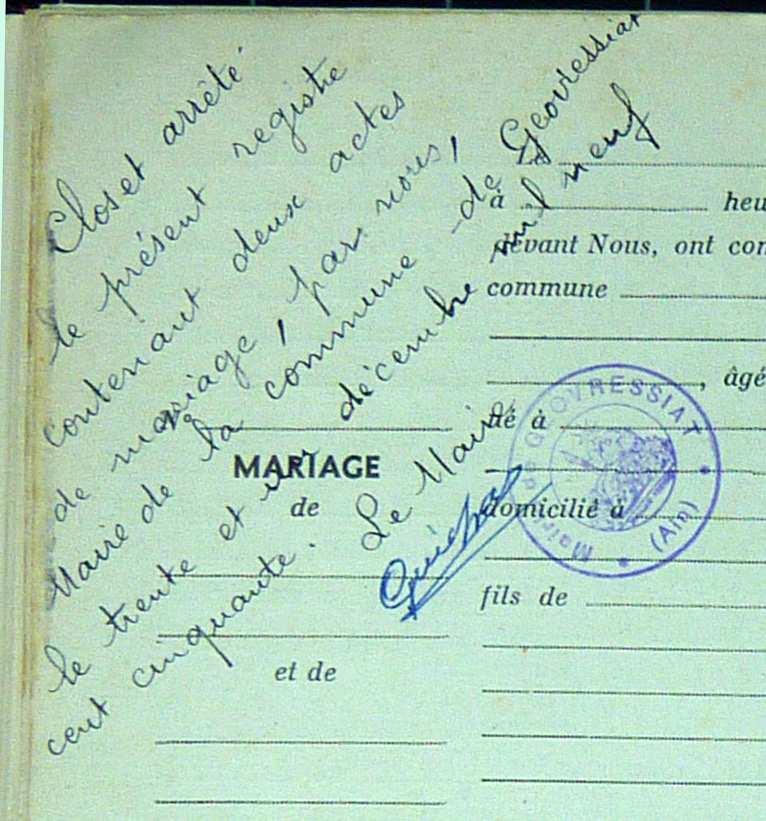 Closet arrêté
le présent registre
contenant deux actes
de mariage, par nous,
Maire de la commune de Geovressiat
le trente et un décembre mil neuf
cent cinquante. Le Maire
Mairie de GEOVRESSIAT
(Ain)
MARIAGE
de
et de
à heu
devant Nous, ont con
commune
, âgé
né à
domicilié à
fils de